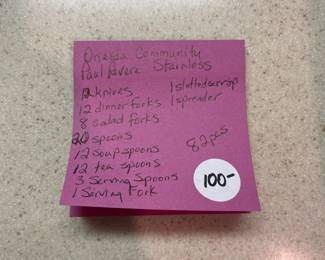 Oneida Community
Paul Revere Stainless
12 knives
12 dinner forks
8 salad forks
20 spoons
12 soup spoons
12 tea spoons
3 Serving Spoons
1 Serving Fork
1 slotted serving sp
1 spreader
82 pcs
100-